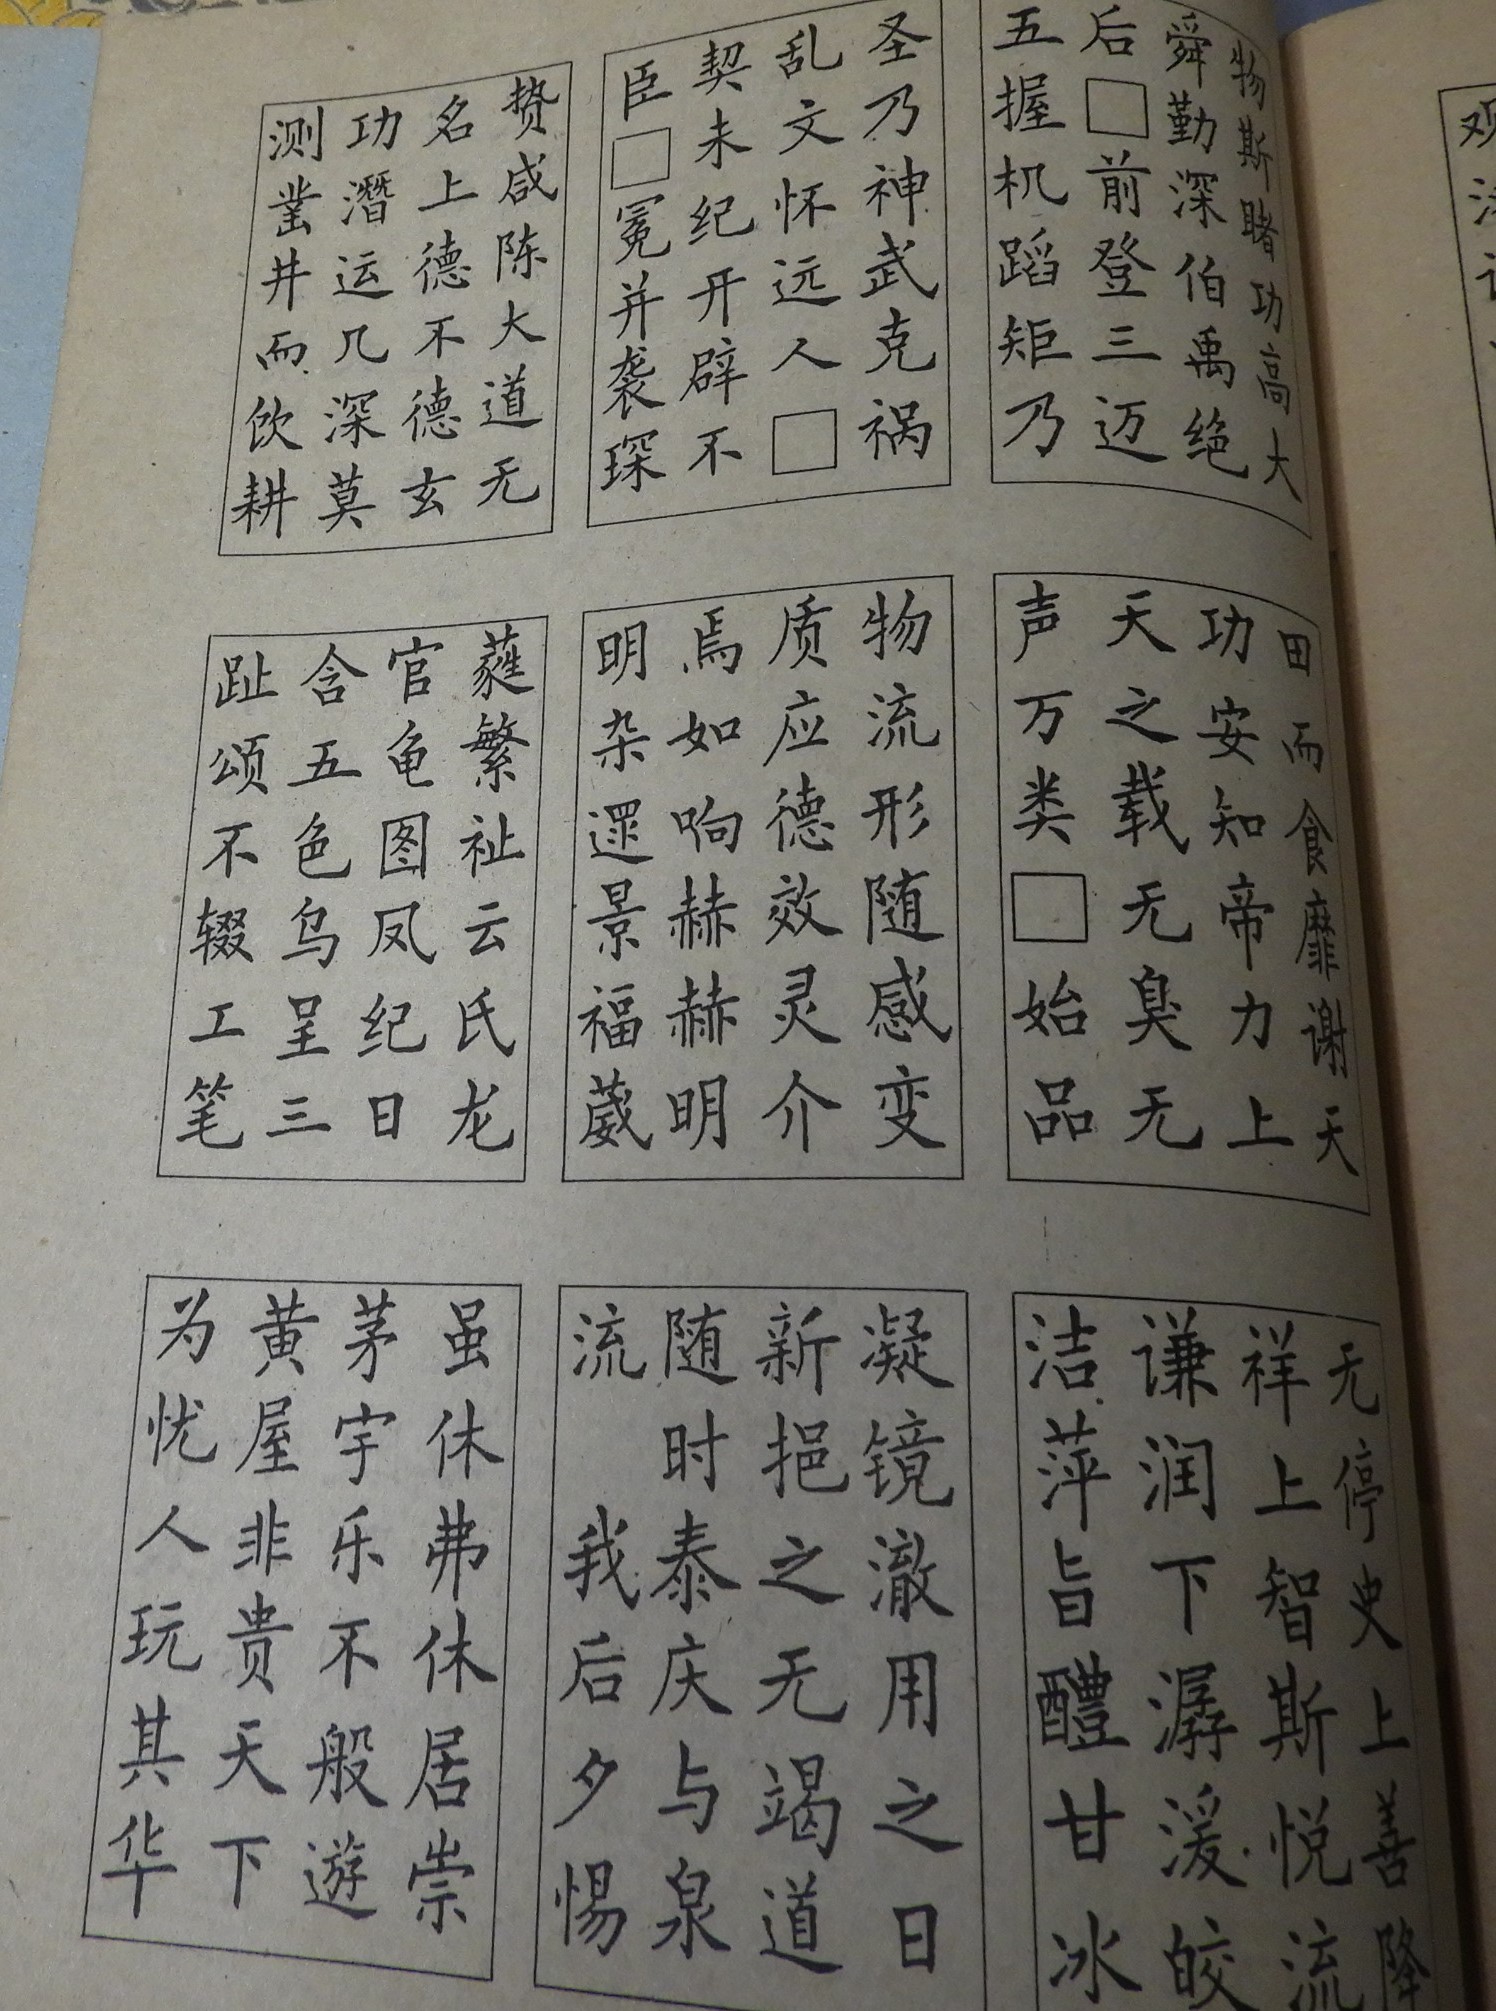 物斯睹功高大
舜勤深伯禹绝
后□前登三迈
五握机蹈矩乃
圣乃神武克祸
乱文怀远人□
契未纪开辟不
臣□冕并袭琛
贽咸陈大道无
名上德不德玄
功潜运几深莫
测凿井而饮耕
田而食靡谢天
功安知帝力上
天之载无臭无
声万类□始品
物流形随感变
质应德效灵介
焉如响赫赫明
明杂遝景福葳
蕤繁祉云氏龙
官龟图凤纪日
含五色乌呈三
趾颂不辍工笔
无停史上善降
祥上智斯悦流
谦润下潺湲皎
洁萍旨醴甘冰
凝镜澈用之日
新挹之无竭道
随时泰庆与泉
流 我后夕惕
虽休弗休居崇
茅宇乐不般遊
黄屋非贵天下
为忧人玩其华